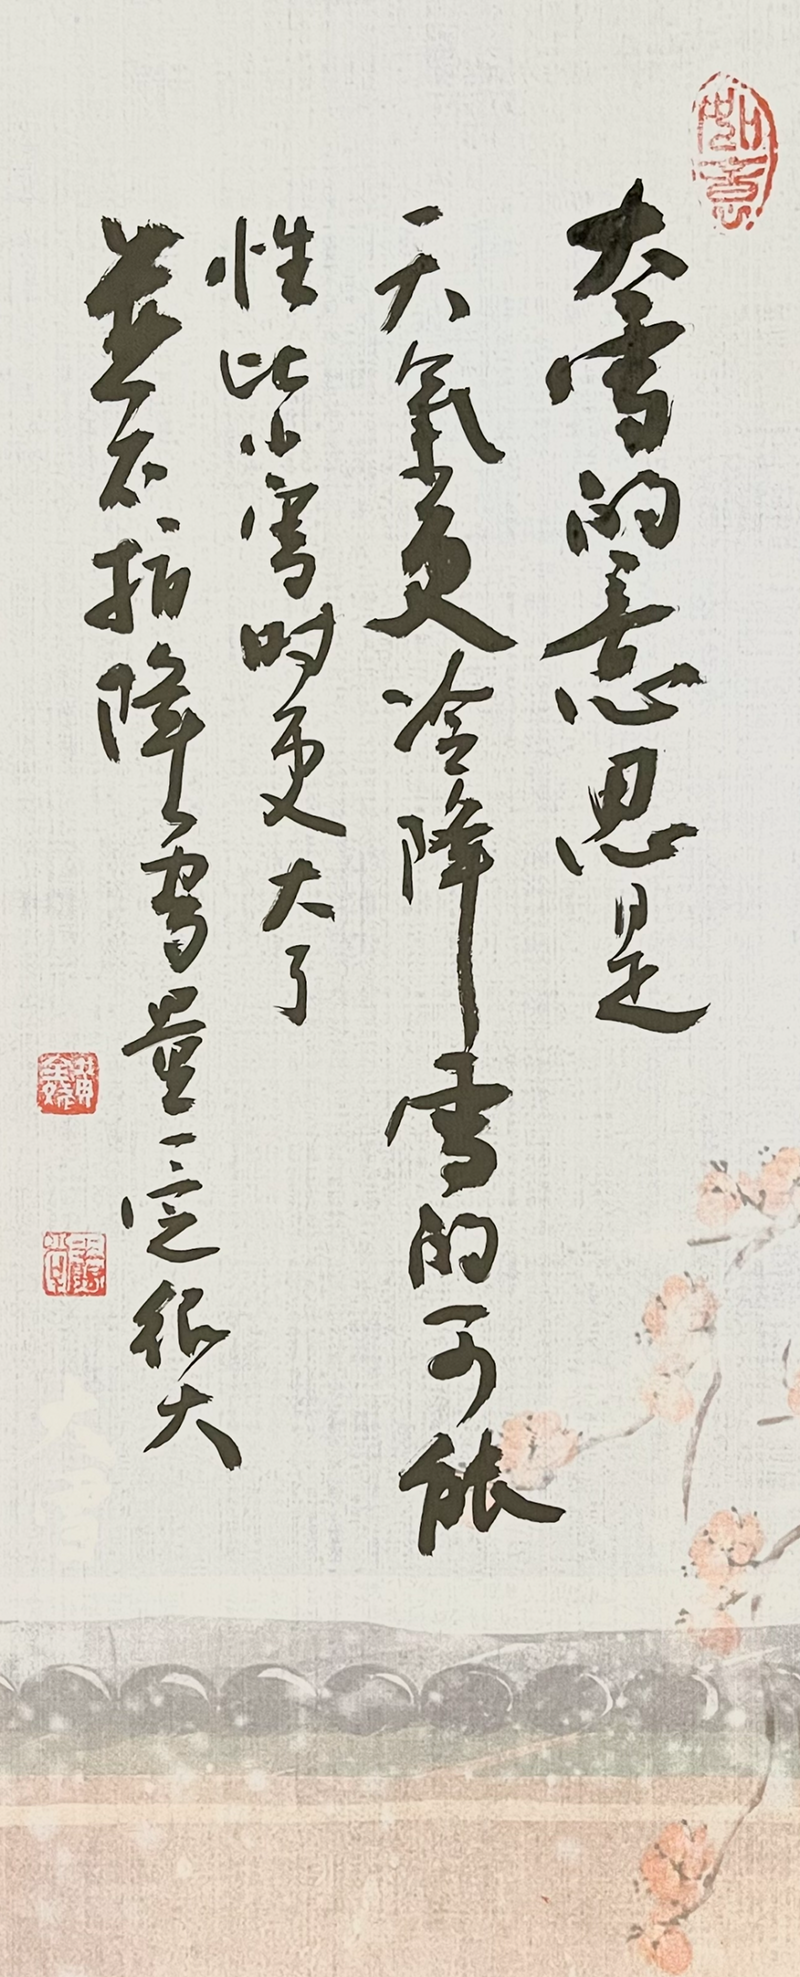 大雪的意思是
天氣更冷降雪的可能
性比小雪时更大了
並不指降雪量一定很大
如意
大雪